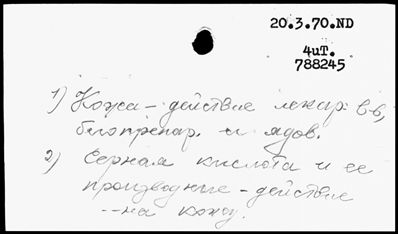 20.3.70.ND
4иТ.
788245
1) Кожа - действие лекар. в-в,
биопрепар. и ядов.
2) Серная кислота и ее
производные - действие
--на кожу.